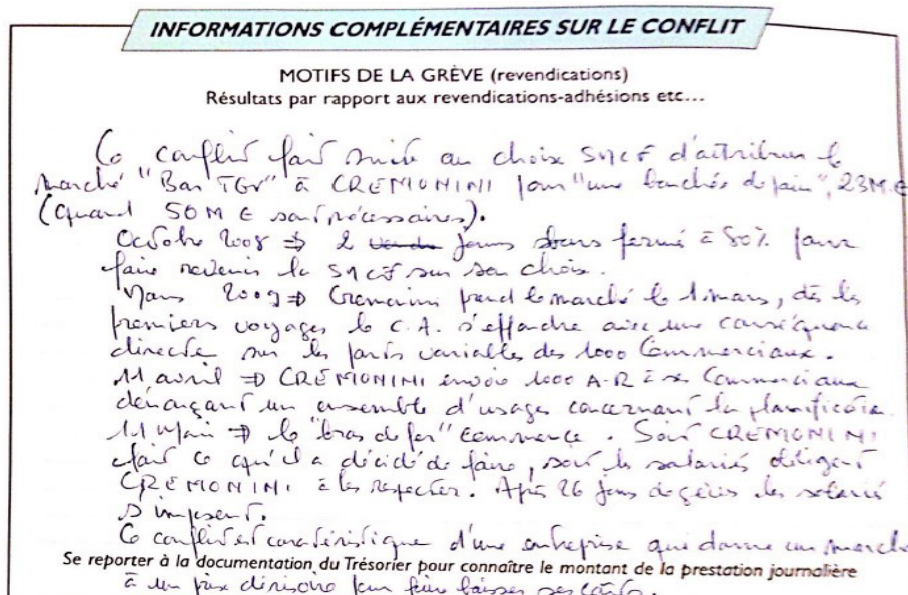 INFORMATIONS COMPLÉMENTAIRES SUR LE CONFLIT
MOTIFS DE LA GRÈVE (revendications)
Résultats par rapport aux revendications-adhésions etc...
Ce conflit fait suite au choix SNCF d'attribuer le
marché "Bar TGV" à CREMONINI pour "une bouchée de pain", 23M €
(quand 50 M € sont nécessaires).
Octobre 2008 ⇒ 2 jours fermé à 80% pour
faire revenir la SNCF sur son choix.
Mars 2009 ⇒ Cremonini prend le marché le 1 mars, dès les
premiers voyages le C.A. s'effondre avec une conséquence
directe sur les parts variables des 1000 Commerciaux.
11 avril ⇒ CRÉMONINI envoie 1000 A-R à ses Commerciaux
dénonçant un ensemble d'usages concernant la planification
11 Mai ⇒ le "bras de fer" commence. Soit CREMONINI
fait ce qu'il a décidé de faire, soit les salariés obligent
CREMONINI à les respecter. Après 26 jours de grève les salarié
s'imposent.
Ce conflit est caractéristique d'une entreprise qui donne un marché
Se reporter à la documentation du Trésorier pour connaître le montant de la prestation journalière
à un prix dérisoire pour faire baisser ses coûts.